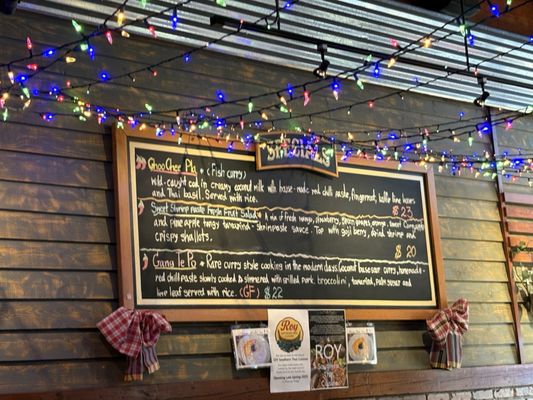 SPECIALS
Choo Chee Pla * (Fish curry)
wild-caught cod in creamy coconut milk with house-made red chili paste, fingerroot, kaffir lime leaves
and Thai basil. Served with rice. $23
Sweet Shrimp paste Fresh Fruit Salad
A mix of fresh mango, strawberry, grapes, orange, sweet
and pine apple tangy tamarind-shrimp paste sauce. Top with goji berry, dried shrimp and
crispy shallots. $20
Gang Te Po - Rare curry style cooking in the modern days. Coconut base sour curry, homemade
red chili paste slowly cooked & simmered with grilled pork, broccolini, tamarind, palm sugar and
lime leaf served with rice. (GF) $22
ROY
ROY